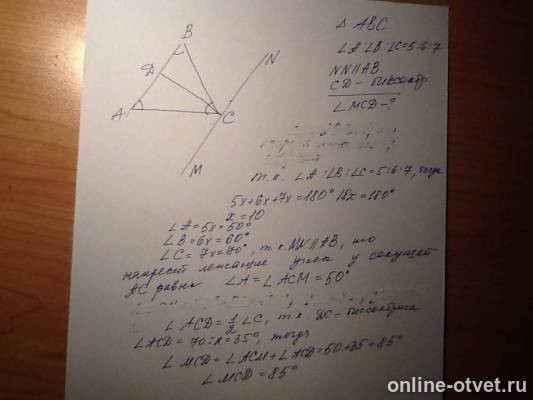 B
D
N
A
C
M
Δ ABC
∠A:∠B:∠C=5:6:7
NN||AB
CD - биссектр
∠MCD-?
т.к. ∠A:∠B:∠C=5:6:7, тогда
5x+6x+7x=180° 18x=180°
x=10
∠A=5x=50°
∠B=6x=60°
∠C=7x=70°, т.к. MN||AB, то
накрест лежащие углы у секущей
AC равны ∠A=∠ACM=50°
∠ACD=1/2∠C, т.к DC-биссектриса
∠ACD=70:2=35°, тогда
∠MCD=∠ACM+∠ACD=50+35=85°
∠MCD=85°
online-otvet.ru